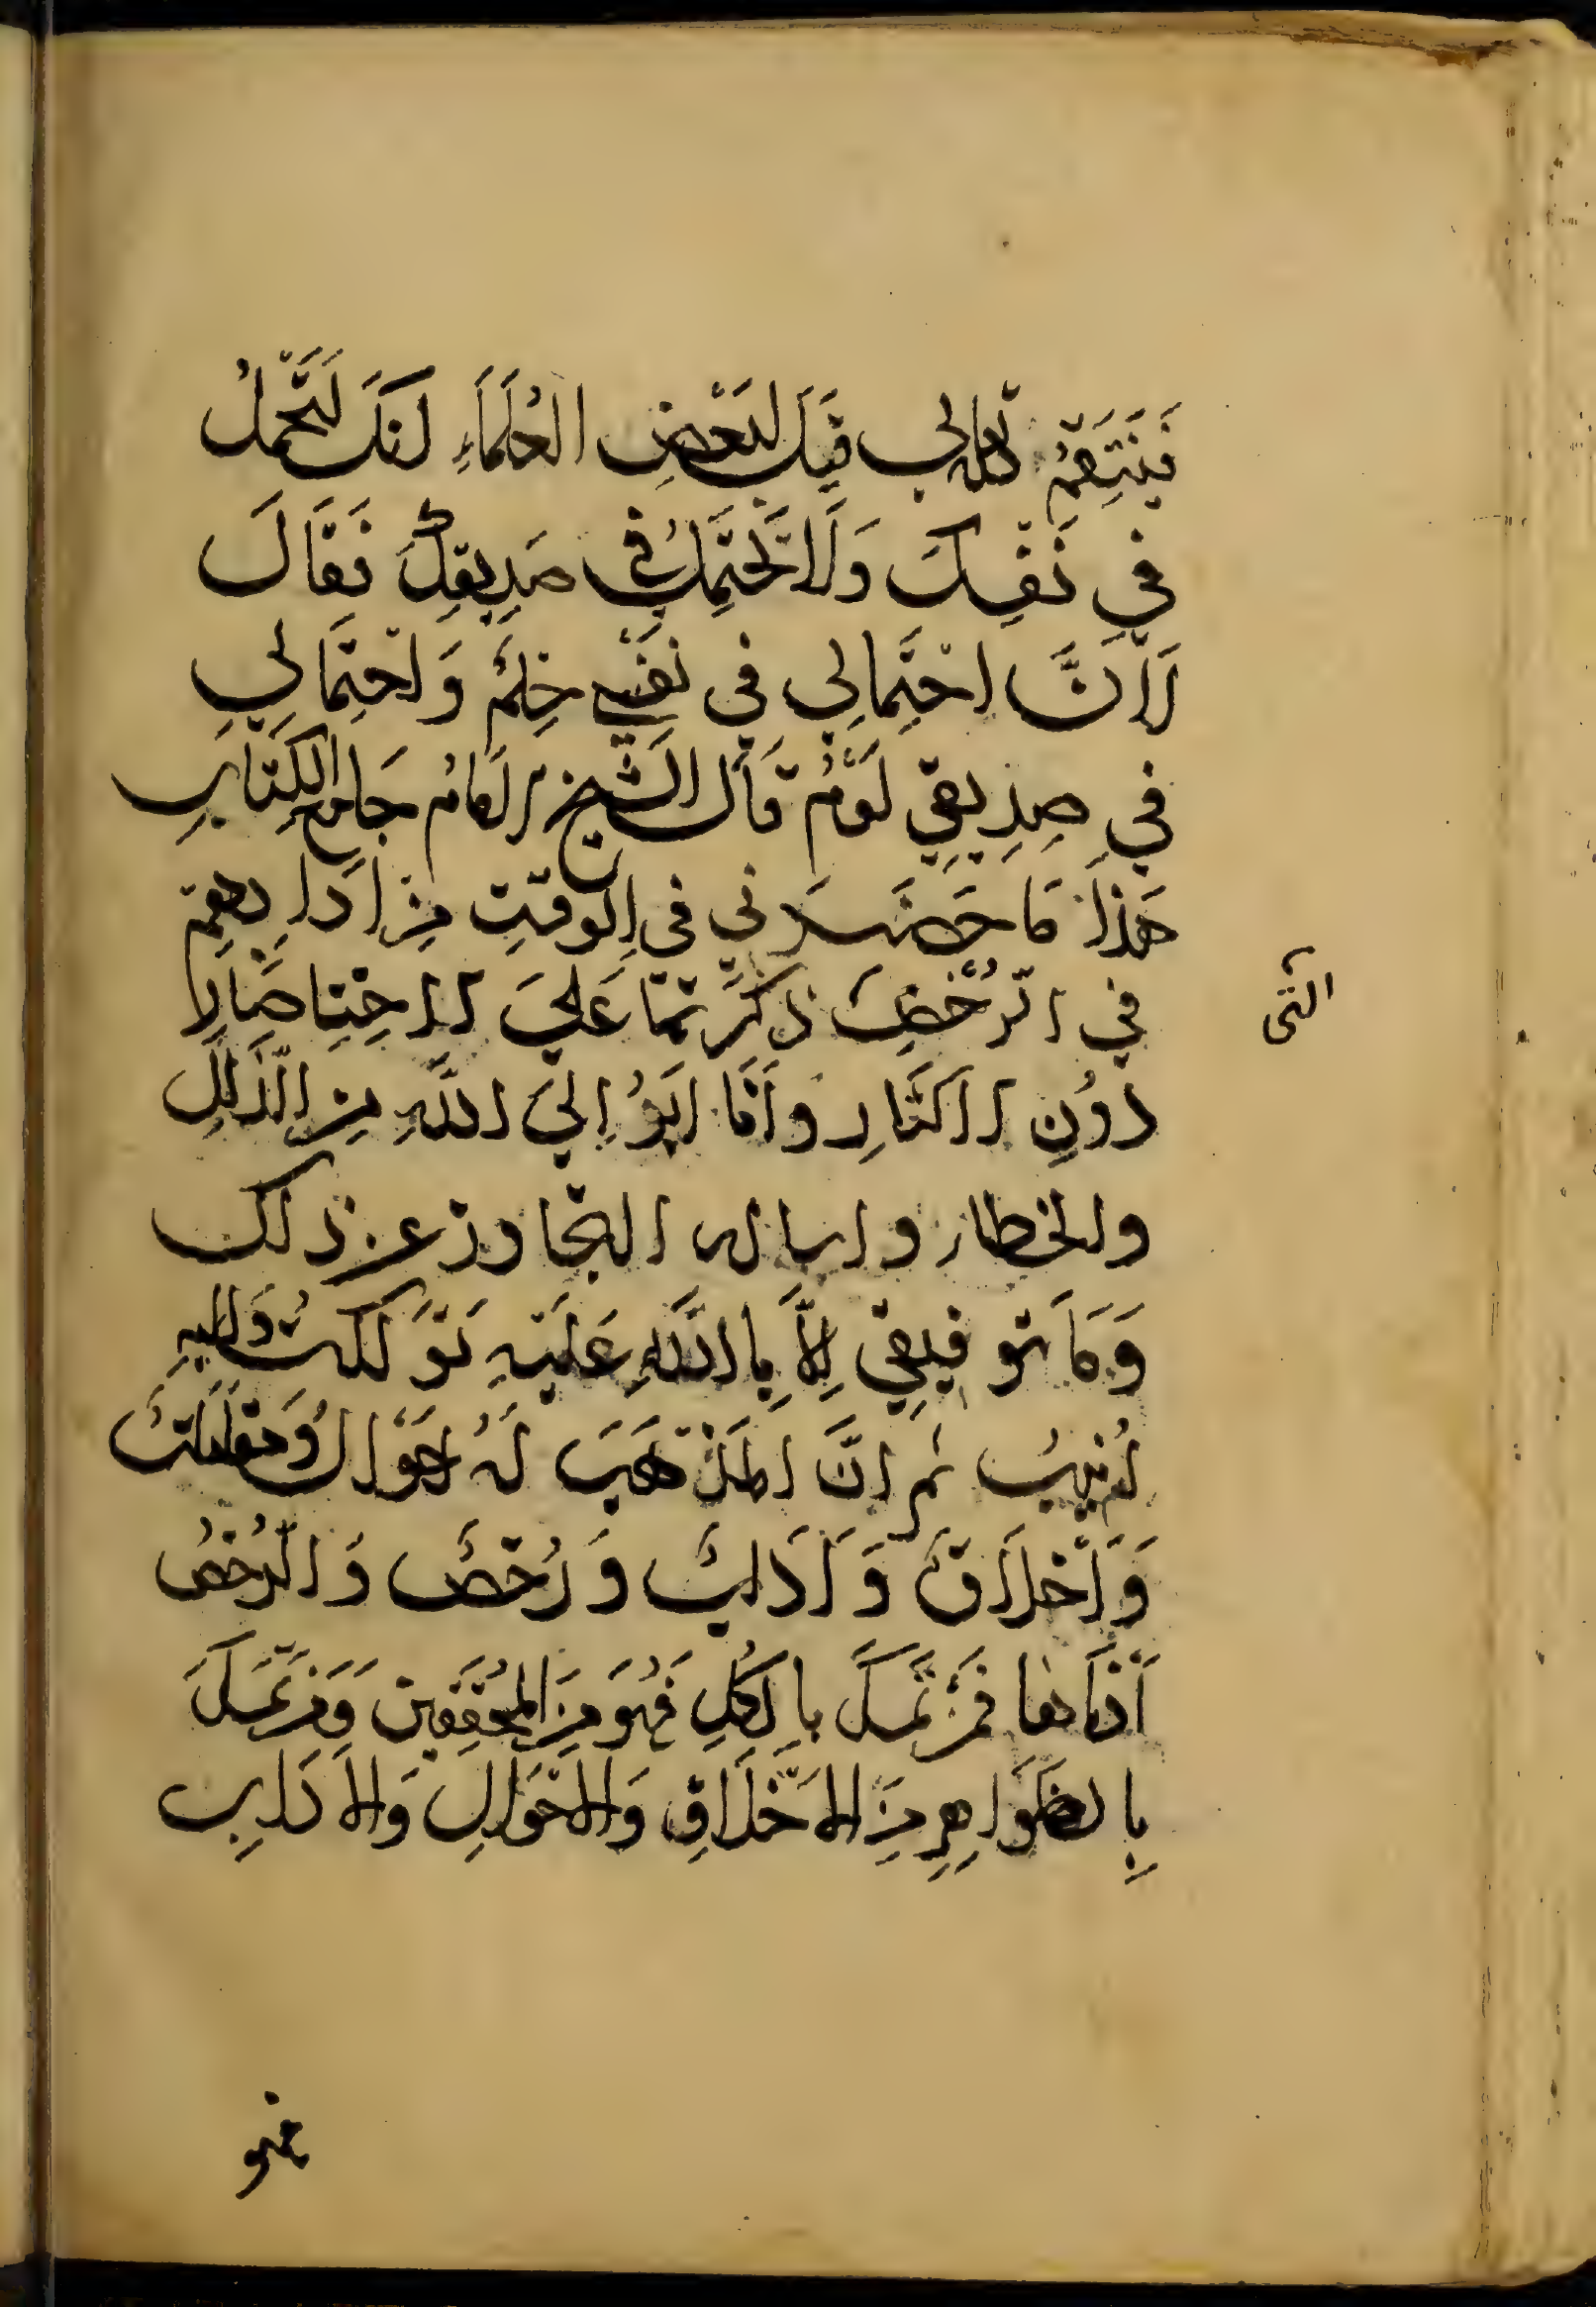 فَيَنْتَقِمُ لله تعالى قيل لبَعْضِ العُلَمَاءِ انكَ لتَحْمِلُ
في نَفْسِكَ وَلَا تَحْتَمِلُ في صَدِيقِكَ فَقَالَ
لِاَنَّ احْتِمالِي في نَفْسِي حِلْمٌ وَاحْتِمَالِي
في صدِيقِي لَوْمٌ قَالَ الشَّيخ الامامُ جَامِعُ الكِتَابِ
هَذَا مَا حَضَرَنِي في الوقتِ مِنْ ادابهِمْ
في الرُّخَصِ ذكَرْتُها عَلىَ الاخْتِصَار لا
دُونِ الاكثَارِ وَاَنَا ابرَأُ اِلىَ اللَّهِ مِنَ الزَّلَلِ
والخطاء واساله التجاوز عن ذلك
وَمَا توفيقي اِلَّا بِاللَّهِ عَلَيْهِ تَوَكَّلْتُ وَاِلَيْهِ
اُنِيبُ ثم اِنَّ المَذْهَبَ لَهُ اَحْوَالٌ وَمَقَامَاتٌ
وَاَخْلَاقٌ وَادَابٌ وَرُخَصٌ وَالرُّخَصُ
اَدْنَاهَا فَمَنْ تَمَسَّكَ بِالكُلِّ فَهُوَ مِنَ المُحَقِّقِينَ وَمَنْ تَمَسَّكَ
بِالظَوَاهِرِ مِنَ الاَخْلَاقِ وَالاحْوَالِ وَالادَابِ
فهو